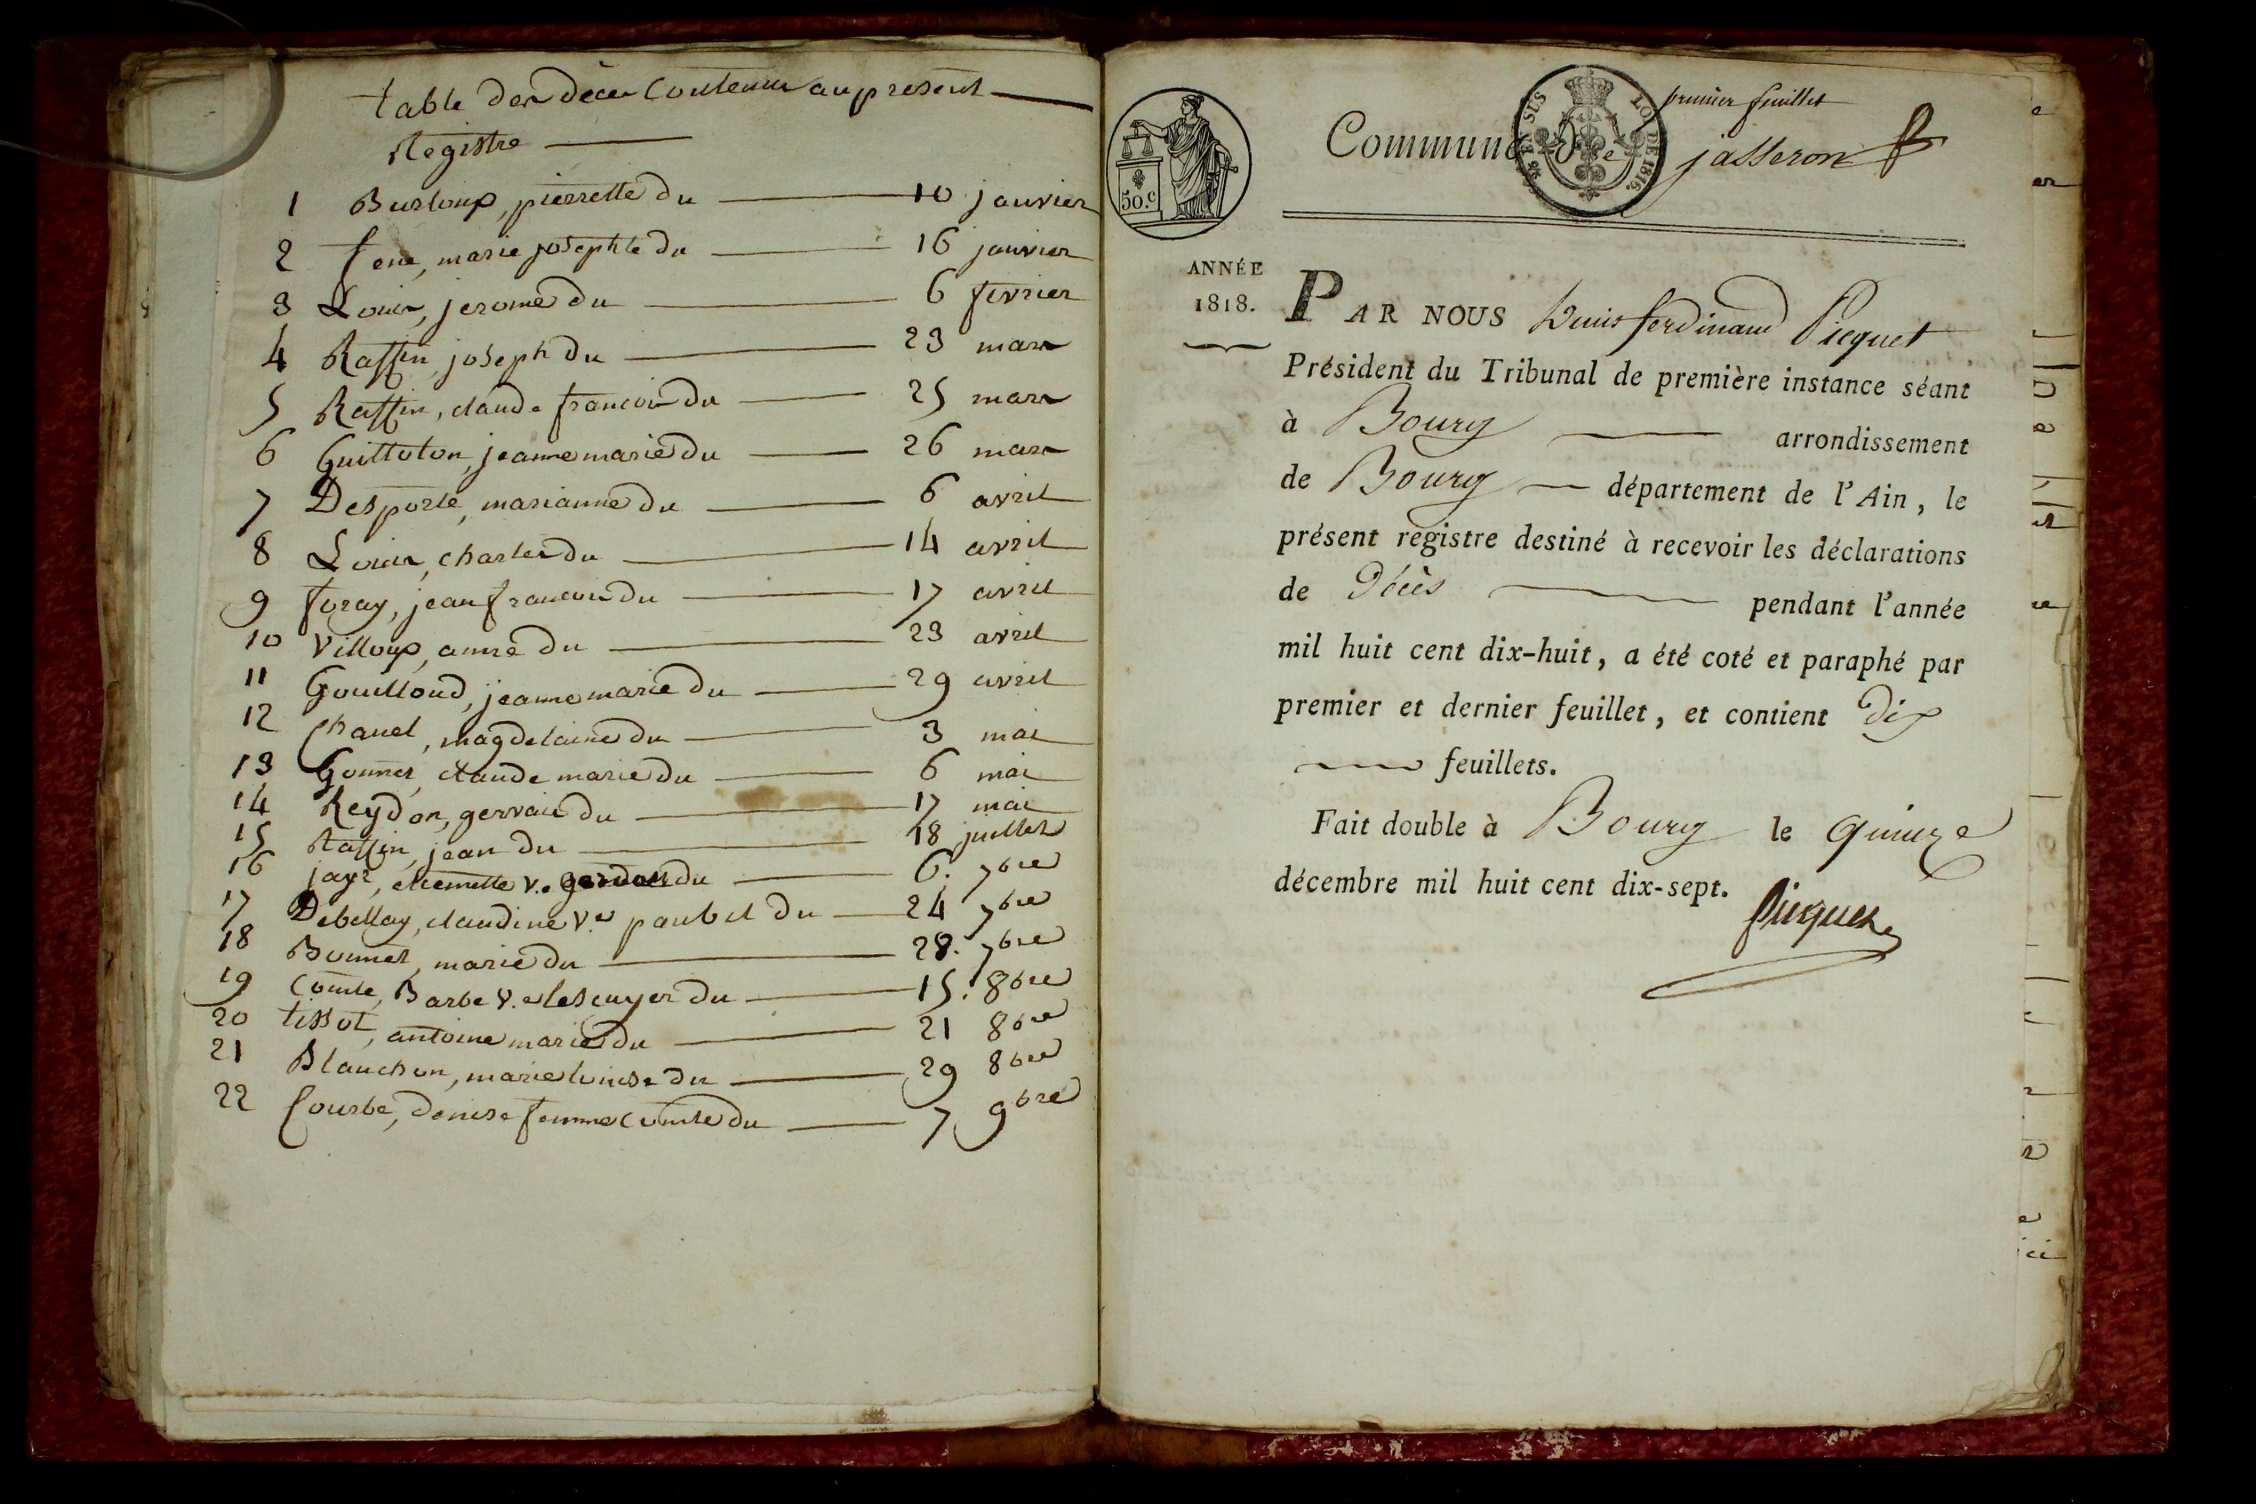 table des décès contenus au présent
Registre
1 Burloup, pierrette du 10 janvier
2 fene, marie josephte du 16 janvier
3 Louis, jerome du 6 fevrier
4 Raffin, joseph du 23 mars
5 Raffin, claude francois du 25 mars
6 Guilloton, jeanne marie du 26 mars
7 Desporte, marianne du 6 avril
8 Louis, charles du 14 avril
9 foray, jean francois du 17 avril
10 Villoup, anne du 23 avril
11 Gouilloud, jeanne marie du 29 avril
12 Chanel, magdelaine du 3 mai
13 Gonnet, claude marie du 6 mai
14 Reydon, gervais du 17 mai
15 Raffin, jean du 18 juillet
16 jayr, etiennette v.e du 6. 7bre
17 Debellay, claudine v.e paubel du 24 7bre
18 Bonnet, marie du 28. 7bre
19 Comte, Barbe v.e lescuyer du 15. 8bre
20 tissot, antoine marie du 21 8bre
21 Blanchon, marie louise du 29 8bre
22 Courbe, denise femme Comte du 7 9bre
premier feuillet
Commune de jasseron
50.c
EN SUS
LOI DE 1816.
ANNÉE
1818.
PAR NOUS Louis ferdinand Picquet
Président du Tribunal de première instance séant
à Bourg arrondissement
de Bourg département de l'Ain, le
présent registre destiné à recevoir les déclarations
de Décès pendant l'année
mil huit cent dix-huit, a été coté et paraphé par
premier et dernier feuillet, et contient dix
feuillets.
Fait double à Bourg le quinze
décembre mil huit cent dix-sept.
Picquet